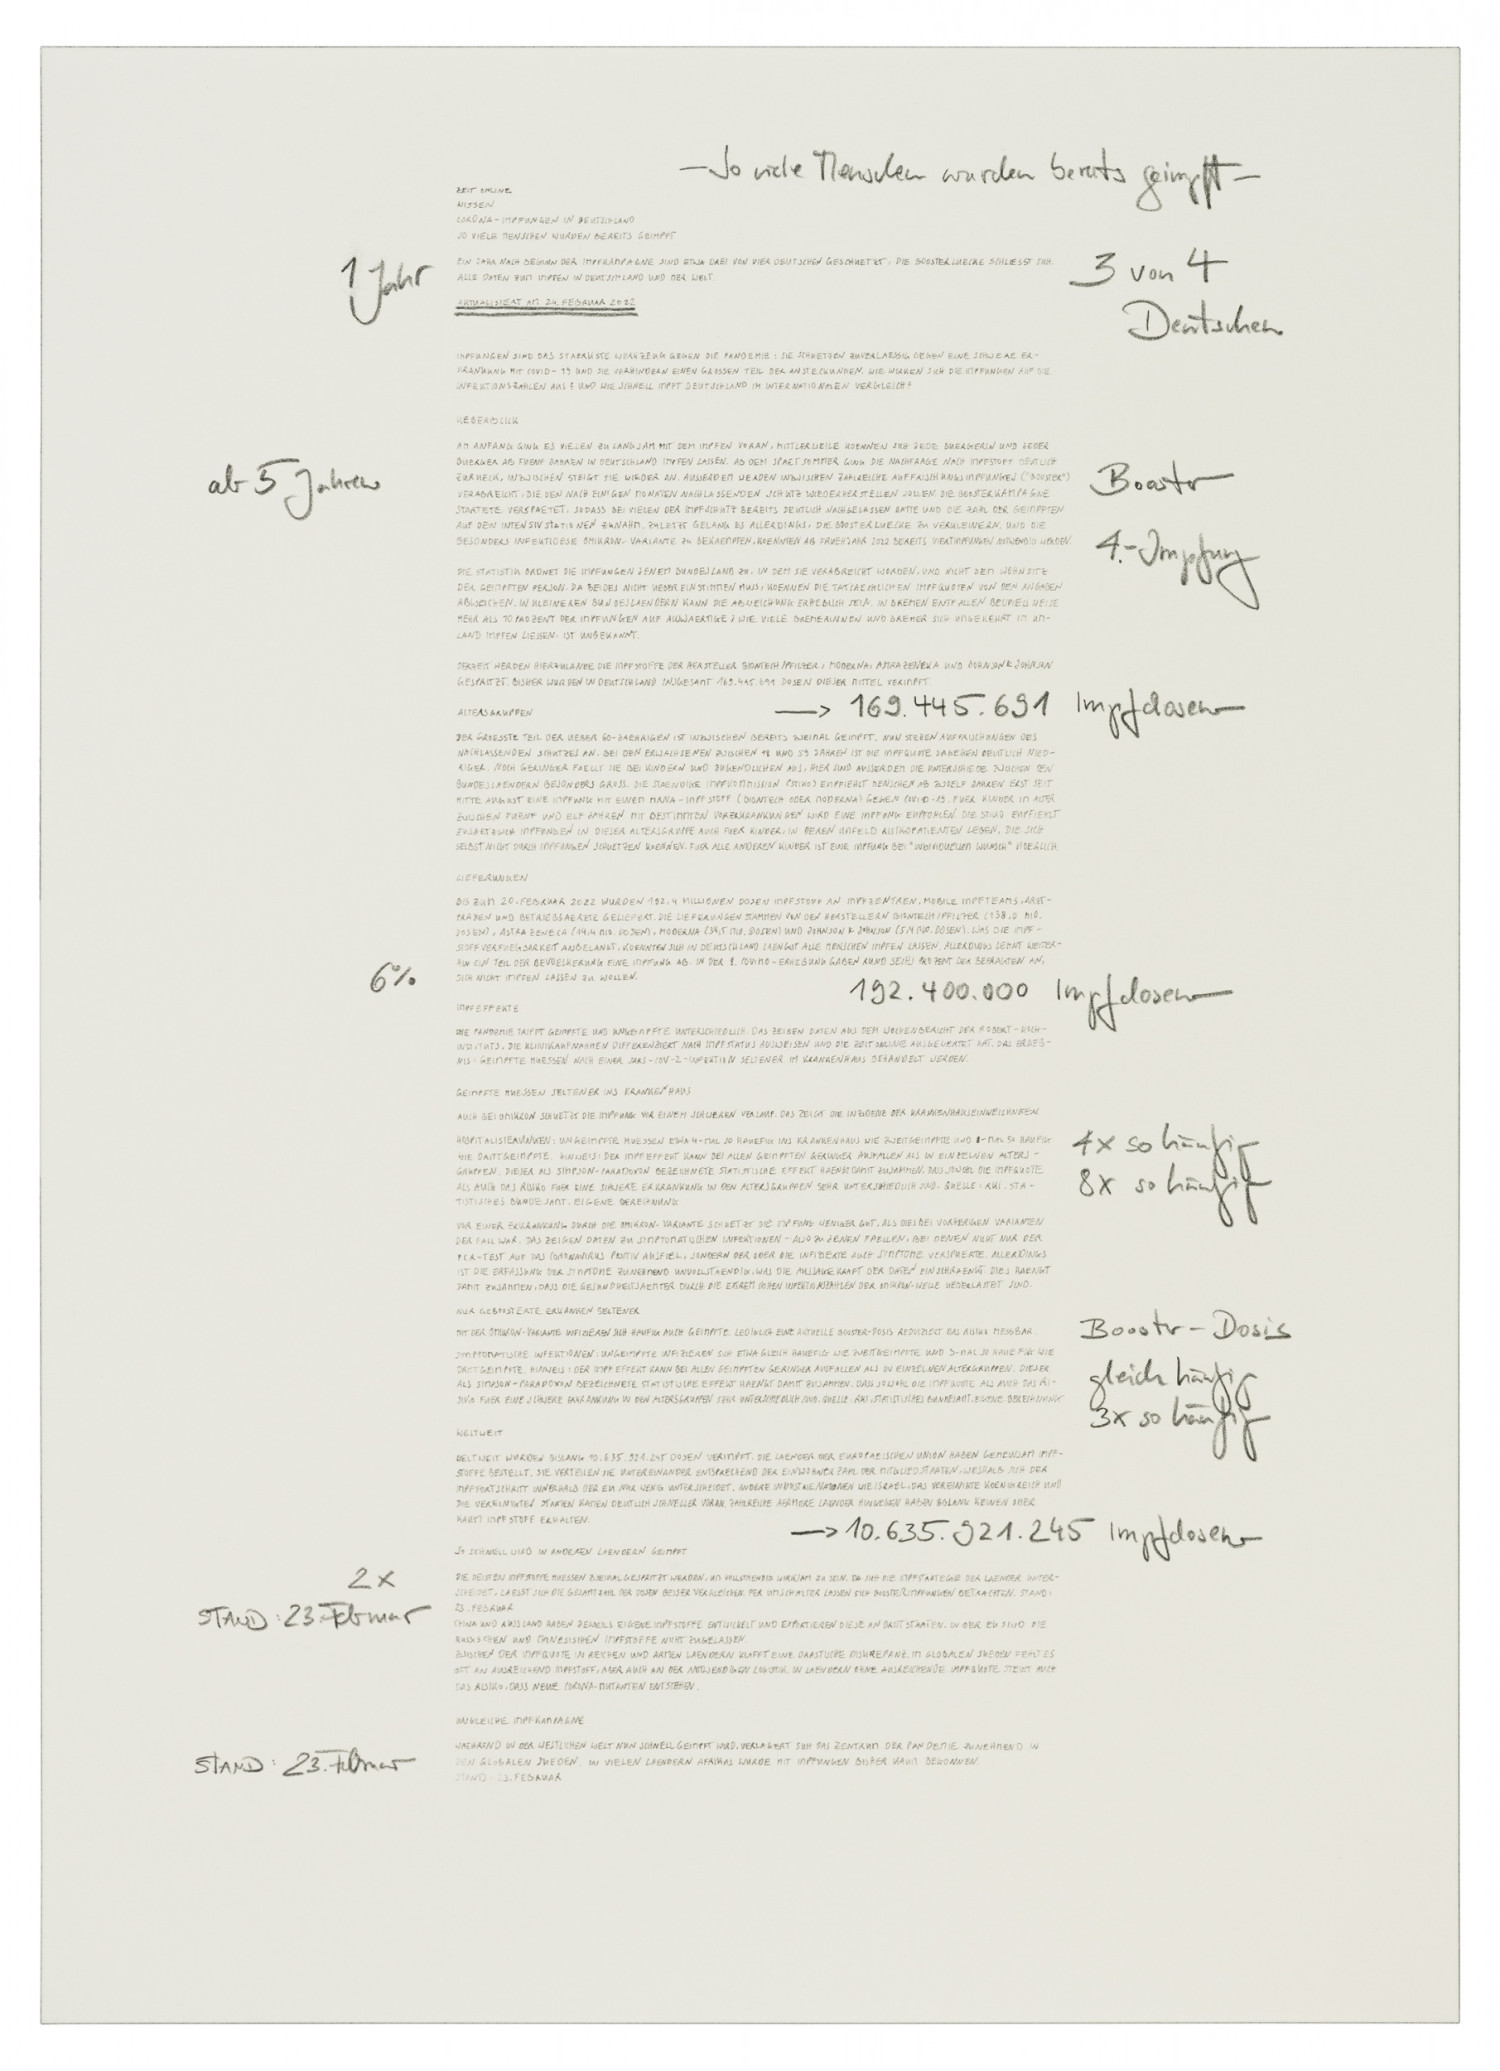 – So viele Menschen wurden bereits geimpft –
ZEIT ONLINE
WISSEN
CORONA-IMPFUNGEN IN DEUTSCHLAND
SO VIELE MENSCHEN WURDEN BEREITS GEIMPFT
1 Jahr
EIN JAHR NACH BEGINN DER IMPFKAMPAGNE SIND ETWA DREI VON VIER DEUTSCHEN GESCHUETZT. DIE BOOSTERLUECKE SCHLIESST SICH.
ALLE DATEN ZUM IMPFEN IN DEUTSCHLAND UND DER WELT.
3 von 4
Deutschen
AKTUALISIERT AM 24. FEBRUAR 2022
IMPFUNGEN SIND DAS STAERKSTE WERKZEUG GEGEN DIE PANDEMIE: SIE SCHUETZEN ZUVERLAESSIG GEGEN EINE SCHWERE ER-
KRANKUNG MIT COVID-19 UND SIE VERHINDERN EINEN GROSSEN TEIL DER ANSTECKUNGEN. WIE WIRKEN SICH DIE IMPFUNGEN AUF DIE
INFEKTIONSZAHLEN AUS? UND WIE SCHNELL IMPFT DEUTSCHLAND IM INTERNATIONALEN VERGLEICH?
UEBERBLICK
AM ANFANG GING ES VIELEN ZU LANGSAM MIT DEM IMPFEN VORAN, MITTLERWEILE KOENNEN SICH JEDE BUERGERIN UND JEDER
BUERGER AB FUENF JAHREN IN DEUTSCHLAND IMPFEN LASSEN. AB DEM SPAETSOMMER GING DIE NACHFRAGE NACH IMPFSTOFF DEUTLICH
ZURUECK, INZWISCHEN STEIGT SIE WIEDER AN. AUSSERDEM WERDEN INZWISCHEN ZAHLREICHE AUFFRISCHUNGSIMPFUNGEN ("BOOSTER")
VERABREICHT, DIE DEN NACH EINIGEN MONATEN NACHLASSENDEN SCHUTZ WIEDERHERSTELLEN SOLLEN. DIE BOOSTERKAMPAGNE
STARTETE VERSPAETET, SODASS BEI VIELEN DER IMPFSCHUTZ BEREITS DEUTLICH NACHGELASSEN HATTE UND DIE ZAHL DER GEIMPFTEN
AUF DEN INTENSIVSTATIONEN ZUNAHM. ZULETZT GELANG ES ALLERDINGS, DIE BOOSTERLUECKE ZU VERKLEINERN. UND DIE
BESONDERS INFEKTIOESE OMIKRON-VARIANTE ZU BEKAEMPFEN, KOENNTEN AB FRUEHJAHR 2022 BEREITS VIERTIMPFUNGEN NOTWENDIG WERDEN.
ab 5 Jahren
Booster
4.-Impfung
DIE STATISTIK ORDNET DIE IMPFUNGEN JENEM BUNDESLAND ZU, IN DEM SIE VERABREICHT WORDEN, UND NICHT DEM WOHNSITZ
DER GEIMPFTEN PERSON. DA BEIDES NICHT UEBEREINSTIMMEN MUSS, KOENNEN DIE TATSAECHLICHEN IMPFQUOTEN VON DEN ANGABEN
ABWEICHEN. IN KLEINEREN BUNDESLAENDERN KANN DIE ABWEICHUNG ERHEBLICH SEIN. IN BREMEN ENTFALLEN BEISPIELWEISE
MEHR ALS 10 PROZENT DER IMPFUNGEN AUF AUSWAERTIGE; WIE VIELE BREMERINNEN UND BREMER SICH UMGEKEHRT IM UM-
LAND IMPFEN LIESSEN, IST UNBEKANNT.
DERZEIT WERDEN HIERZULANDE DIE IMPFSTOFFE DER HERSTELLER BIONTECH/PFIZER, MODERNA, ASTRAZENEKA UND JOHNSON & JOHNSON
GESPRITZT. BISHER WURDEN IN DEUTSCHLAND INSGESAMT 169.445.691 DOSEN DIESER MITTEL VERIMPFT.
→ 169.445.691 Impfdosen
ALTERSGRUPPEN
DER GROESSTE TEIL DER UEBER 60-JAEHRIGEN IST INZWISCHEN BEREITS ZWEIMAL GEIMPFT. NUN STEHEN AUFFRISCHUNGEN DES
NACHLASSENDEN SCHUTZES AN. BEI DEN ERWACHSENEN ZWISCHEN 18 UND 59 JAHREN IST DIE IMPFQUOTE DAGEGEN DEUTLICH NIED-
RIGER. NOCH GERINGER FAELLT SIE BEI KINDERN UND JUGENDLICHEN AUS, HIER SIND AUSSERDEM DIE UNTERSCHIEDE ZWISCHEN DEN
BUNDESLAENDERN BESONDERS GROSS. DIE STAENDIGE IMPFKOMMISSION (STIKO) EMPFIEHLT MENSCHEN AB ZWOELF JAHREN ERST SEIT
MITTE AUGUST EINE IMPFUNG MIT EINEM MRNA-IMPFSTOFF (BIONTECH ODER MODERNA) GEGEN COVID-19. FUER KINDER IM ALTER
ZWISCHEN FUENF UND ELF JAHREN MIT BESTIMMTEN VORERKRANKUNGEN WIRD EINE IMPFUNG EMPFOHLEN. DIE STIKO EMPFIEHLT
ZUSAETZLICH IMPFUNGEN IN DIESER ALTERSGRUPPE AUCH FUER KINDER, IN DEREN UMFELD RISIKOPATIENTEN LEBEN, DIE SICH
SELBST NICHT DURCH IMPFUNGEN SCHUETZEN KOENNEN. FUER ALLE ANDEREN KINDER IST EINE IMPFUNG BEI "INDIVIDUELLEM WUNSCH" MOEGLICH.
LIEFERUNGEN
BIS ZUM 20. FEBRUAR 2022 WURDEN 192,4 MILLIONEN DOSEN IMPFSTOFF AN IMPFZENTREN, MOBILE IMPFTEAMS, ARZT-
PRAXEN UND BETRIEBSAERZTE GELIEFERT. DIE LIEFERUNGEN STAMMEN VON DEN HERSTELLERN BIONTECH/PFIZER (138,0 MIO.
DOSEN), ASTRA ZENECA (14,4 MIO. DOSEN), MODERNA (34,5 MIO. DOSEN) UND JOHNSON & JOHNSON (5,4 MIO. DOSEN). WAS DIE IMPF-
STOFFVERFUEGBARKEIT ANBELANGT, KOENNTEN SICH IN DEUTSCHLAND LAENGST ALLE MENSCHEN IMPFEN LASSEN. ALLERDINGS LEHNT WEITER-
HIN EIN TEIL DER BEVOELKERUNG EINE IMPFUNG AB. IN DER 9. COVIMO-ERHEBUNG GABEN RUND SECHS PROZENT DER BEFRAGTEN AN,
SICH NICHT IMPFEN LASSEN ZU WOLLEN.
6%
192.400.000 Impfdosen
IMPFEFFEKTE
DIE PANDEMIE TRIFFT GEIMPFTE UND UNGEIMPFTE UNTERSCHIEDLICH. DAS ZEIGEN DATEN AUS DEM WOCHENBERICHT DER ROBERT-KOCH-
INSTITUTS, DIE KLINIKAUFNAHMEN DIFFERENZIERT NACH IMPFSTATUS AUSWEISEN UND DIE ZEIT ONLINE AUSGEWERTET HAT. DAS ERGEB-
NIS: GEIMPFTE MUESSEN NACH EINER SARS-COV-2-INFEKTION SELTENER IM KRANKENHAUS BEHANDELT WERDEN.
GEIMPFTE MUESSEN SELTENER INS KRANKENHAUS
AUCH BEI OMIKRON SCHUETZT DIE IMPFUNG VOR EINEM SCHWEREN VERLAUF. DAS ZEIGT DIE INZIDENZ DER KRANKENHAUSEINWEISUNGEN
HOSPITALISIERUNGEN: UNGEIMPFTE MUESSEN ETWA 4-MAL SO HAEUFIG INS KRANKENHAUS WIE ZWEITGEIMPFTE UND 8-MAL SO HAEUFIG
WIE DRITTGEIMPFTE. HINWEIS: DER IMPFEFFEKT KANN BEI ALLEN GEIMPFTEN GERINGER AUSFALLEN ALS IN EINZELNEN ALTERS-
GRUPPEN. DIESER ALS SIMPSON-PARADOXON BEZEICHNETE STATISTISCHE EFFEKT HAENGT DAMIT ZUSAMMEN, DASS SOWOHL DIE IMPFQUOTE
ALS AUCH DAS RISIKO FUER EINE SCHWERE ERKRANKUNG IN DEN ALTERSGRUPPEN SEHR UNTERSCHIEDLICH SIND. QUELLE: RKI, STA-
TISTISCHES BUNDESAMT, EIGENE BERECHNUNG
4x so häufig
8x so häufig
VOR EINER ERKRANKUNG DURCH DIE OMIKRON-VARIANTE SCHUETZT DIE IMPFUNG WENIGER GUT, ALS DIES BEI VORHERIGEN VARIANTEN
DER FALL WAR. DAS ZEIGEN DATEN ZU SYMPTOMATISCHEN INFEKTIONEN – ALSO ZU JENEN FAELLEN, BEI DENEN NICHT NUR DER
PCR-TEST AUF DAS CORONAVIRUS POSITIV AUSFIEL, SONDERN DER ODER DIE INFIZIERTE AUCH SYMPTOME VERSPUERTE. ALLERDINGS
IST DIE ERFASSUNG DER SYMPTOME ZUNEHMEND UNVOLLSTAENDIG, WAS DIE AUSSAGEKRAFT DER DATEN EINSCHRAENKT. DIES HAENGT
DAMIT ZUSAMMEN, DASS DIE GESUNDHEITSAEMTER DURCH DIE EXTREM HOHEN INFEKTIONSZAHLEN DER OMIKRON-WELLE UEBERLASTET SIND.
NUR GEBOOSTERTE ERKRANKEN SELTENER
MIT DER OMIKRON-VARIANTE INFIZIEREN SICH HAEUFIG AUCH GEIMPFTE. LEDIGLICH EINE AKTUELLE BOOSTER-DOSIS REDUZIERT DAS RISIKO MESSBAR.
SYMPTOMATISCHE INFEKTIONEN: UNGEIMPFTE INFIZIEREN SICH ETWA GLEICH HAEUFIG WIE ZWEITGEIMPFTE UND 3-MAL SO HAEUFIG WIE
DRITTGEIMPFTE. HINWEIS: DER IMPFEFFEKT KANN BEI ALLEN GEIMPFTEN GERINGER AUSFALLEN ALS IN EINZELNEN ALTERSGRUPPEN. DIESER
ALS SIMPSON-PARADOXON BEZEICHNETE STATISTISCHE EFFEKT HAENGT DAMIT ZUSAMMEN, DASS SOWOHL DIE IMPFQUOTE ALS AUCH DAS RI-
SIKO FUER EINE SCHWERE ERKRANKUNG IN DEN ALTERSGRUPPEN SEHR UNTERSCHIEDLICH SIND. QUELLE: RKI, STATISTISCHES BUNDESAMT, EIGENE BERECHNUNG
Booster-Dosis
gleich häufig
3x so häufig
WELTWEIT
WELTWEIT WURDEN BISLANG 10.635.921.245 DOSEN VERIMPFT. DIE LAENDER DER EUROPAEISCHEN UNION HABEN GEMEINSAM IMPF-
STOFFE BESTELLT. SIE VERTEILEN SIE UNTEREINANDER ENTSPRECHEND DER EINWOHNERZAHL DER MITGLIEDSTAATEN, WESHALB SICH DER
IMPFFORTSCHRITT INNERHALB DER EU NUR WENIG UNTERSCHEIDET. ANDERE INDUSTRIENATIONEN WIE ISRAEL, DAS VEREINIGTE KOENIGREICH UND
DIE VEREINIGTEN STAATEN KAMEN DEUTLICH SCHNELLER VORAN. ZAHLREICHE AERMERE LAENDER HINGEGEN HABEN BISLANG KEINEN ODER
KAUM IMPFSTOFF ERHALTEN.
→ 10.635.921.245 Impfdosen
SO SCHNELL WIRD IN ANDEREN LAENDERN GEIMPFT
DIE MEISTEN IMPFSTOFFE MUESSEN ZWEIMAL GESPRITZT WERDEN, UM VOLLSTAENDIG WIRKSAM ZU SEIN. DA SICH DIE IMPFSTRATEGIE DER LAENDER UNTER-
SCHEIDET, LAESST SICH DIE GESAMTZAHL DER DOSEN BESSER VERGLEICHEN. PER UMSCHALTER LASSEN SICH BOOSTERIMPFUNGEN BETRACHTEN. STAND:
23. FEBRUAR
2x
STAND: 23. Februar
CHINA UND RUSSLAND HABEN JEWEILS EIGENE IMPFSTOFFE ENTWICKELT UND EXPORTIEREN DIESE AN DRITTSTAATEN. IN DER EU SIND DIE
RUSSISCHEN UND CHINESISCHEN IMPFSTOFFE NICHT ZUGELASSEN.
ZWISCHEN DER IMPFQUOTE IN REICHEN UND ARMEN LAENDERN KLAFFT EINE DRASTISCHE DISKREPANZ. IM GLOBALEN SUEDEN FEHLT ES
OFT AN AUSREICHEND IMPFSTOFF, ABER AUCH AN DER NOTWENDIGEN LOGISTIK. IN LAENDERN OHNE AUSREICHENDE IMPFQUOTE STEIGT AUCH
DAS RISIKO, DASS NEUE CORONA-MUTANTEN ENTSTEHEN.
UNGLEICHE IMPFKAMPAGNE
WAEHREND IN DER WESTLICHEN WELT NUN SCHNELL GEIMPFT WIRD, VERLAGERT SICH DAS ZENTRUM DER PANDEMIE ZUNEHMEND IN
DEN GLOBALEN SUEDEN. IN VIELEN LAENDERN AFRIKAS WURDE MIT IMPFUNGEN BISHER KAUM BEGONNEN.
STAND: 23. FEBRUAR
STAND: 23. Februar